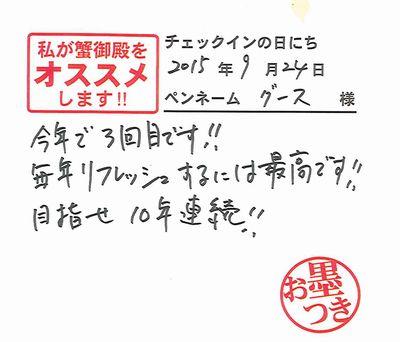 私が蟹御殿を
オススメ
します!!
チェックインの日にち
2015年9月24日
ペンネーム グース 様
今年で3回目です!!
毎年リフレッシュするには最高です!!
目指せ10年連続!!
お墨つき